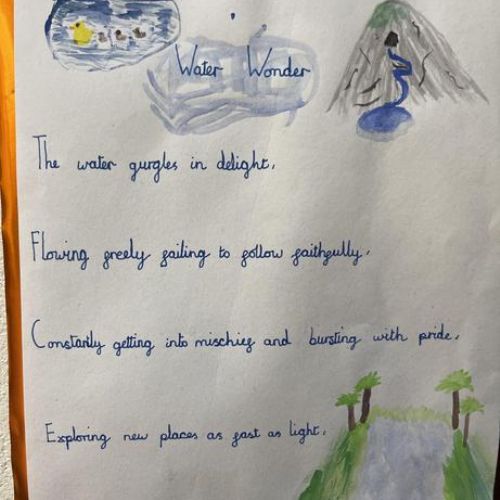 Water Wonder
The water gurgles in delight,
Flowing freely failing to follow faithfully,
Constantly getting into mischief and bursting with pride,
Exploring new places as fast as light,